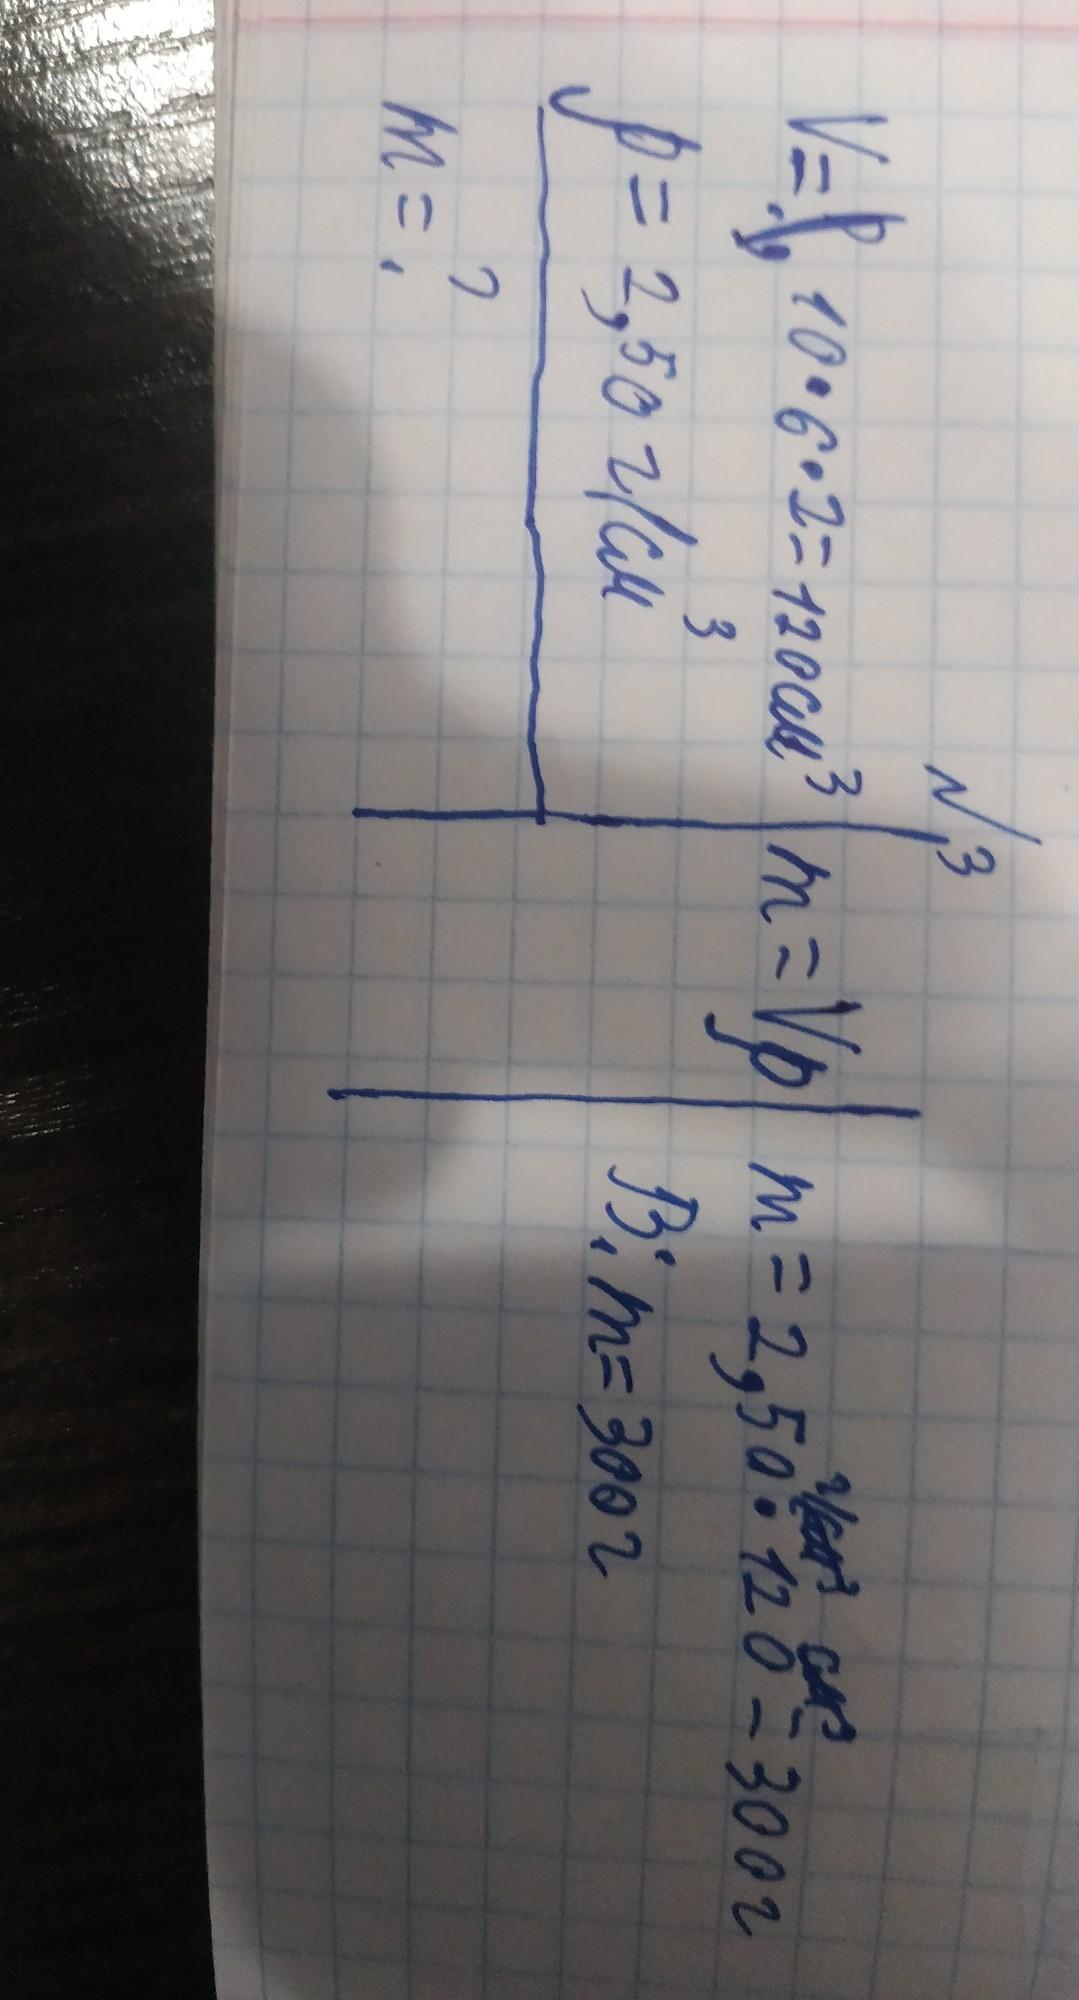 №3
V= 10·6·2=120см³
ρ= 2,50 г/см³
m=?
m=Vρ
m=2,50 г/см³·120 см³=300г
В: m=300г